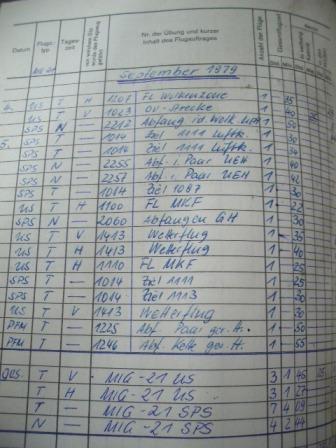 Datum Flugz. typ Tages- zeit Nr. der Übung und kurzer Inhalt des Flugauftrages Anzahl der Flüge
MiG-21 September 1979
4. US T H 1207 FL Wolkenzone 1 - 35
US T V 1023 1 - 40
SPS N — 2212 Abfang id. Wolk. 1 - 50
5. SPS T — 1014 Ziel 1111 Luftk. 1 - 30
SPS T — 1014 Ziel 1111 Luftk. 1 - 30
SPS N — 2255 Abf. i. Paar UEH 1 - 40
SPS N — 2257 Abf. i. Paar UEH 1 - 42
SPS T — 1014 Ziel 1087 1 - 30
US T H 1100 FL MKF 1 - 22
SPS N — 2060 Abfangen GH 1 - 30
US T V 1413 Wetterflug 1 - 35
US T H 1413 Wetterflug 1 - 40
US T H 1110 FL MKF 1 - 25
SPS T — 1014 Ziel 1111 1 - 30
SPS T — 1014 Ziel 1113 1 - 30
US T V 1413 Wetterflug 1 - 30
PFM T — 1225 Abf. Paar ger. H. 1 - 50
PFM T — 1246 Abf. Kette ger. H. 1 - 55
ges. T V MIG-21 US 3 1 45
T H MIG-21 US 3 1 27
T — MIG-21 SPS 7 4 09
N — MIG-21 SPS 4 2 44